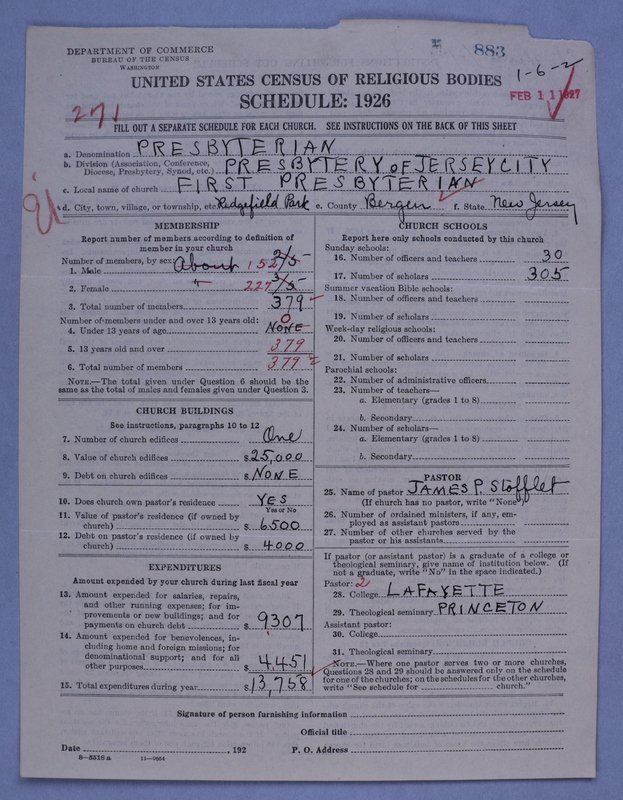 DEPARTMENT OF COMMERCE
BUREAU OF THE CENSUS
WASHINGTON
883
1-6-2
UNITED STATES CENSUS OF RELIGIOUS BODIES
SCHEDULE: 1926
FEB 11 1927
271
FILL OUT A SEPARATE SCHEDULE FOR EACH CHURCH. SEE INSTRUCTIONS ON THE BACK OF THIS SHEET
a. Denomination PRESBYTERIAN
b. Division (Association, Conference, Diocese, Presbytery, Synod, etc.) PRESBYTERY OF JERSEY CITY
c. Local name of church FIRST PRESBYTERIAN
d. City, town, village, or township, etc. Ridgefield Park e. County Bergen f. State New Jersey
MEMBERSHIP
Report number of members according to definition of
member in your church
Number of members, by sex:
1. Male About 152 2/5
2. Female " 227 3/5
3. Total number of members 379
Number of members under and over 13 years old:
4. Under 13 years of age NONE 0
5. 13 years old and over 379
6. Total number of members 379
NOTE.—The total given under Question 6 should be the
same as the total of males and females given under Question 3.
CHURCH BUILDINGS
See instructions, paragraphs 10 to 12
7. Number of church edifices One
8. Value of church edifices $25,000
9. Debt on church edifices $NONE
10. Does church own pastor's residence YES
Yes or No
11. Value of pastor's residence (if owned by
church) $6500
12. Debt on pastor's residence (if owned by
church) $4000
EXPENDITURES
Amount expended by your church during last fiscal year
13. Amount expended for salaries, repairs,
and other running expenses; for im-
provements or new buildings; and for
payments on church debt $9307
14. Amount expended for benevolences, in-
cluding home and foreign missions; for
denominational support; and for all
other purposes $4,451
15. Total expenditures during year $13,758
CHURCH SCHOOLS
Report here only schools conducted by this church
Sunday schools:
16. Number of officers and teachers 30
17. Number of scholars 305
Summer vacation Bible schools:
18. Number of officers and teachers
19. Number of scholars
Week-day religious schools:
20. Number of officers and teachers
21. Number of scholars
Parochial schools:
22. Number of administrative officers
23. Number of teachers—
a. Elementary (grades 1 to 8)
b. Secondary
24. Number of scholars—
a. Elementary (grades 1 to 8)
b. Secondary
PASTOR
25. Name of pastor JAMES P. Stofflet
(If church has no pastor, write "None")
26. Number of ordained ministers, if any, em-
ployed as assistant pastors
27. Number of other churches served by the
pastor or his assistants
If pastor (or assistant pastor) is a graduate of a college or
theological seminary, give name of institution below. (If
not a graduate, write "No" in the space indicated.)
Pastor: 2
28. College LAFAYETTE
29. Theological seminary PRINCETON
Assistant pastor:
30. College
31. Theological seminary
NOTE.—Where one pastor serves two or more churches,
Questions 28 and 29 should be answered only on the schedule
for one of the churches; on the schedules for the other churches,
write "See schedule for church."
Signature of person furnishing information
Official title
Date , 192 P. O. Address
8-5518a 11-9654